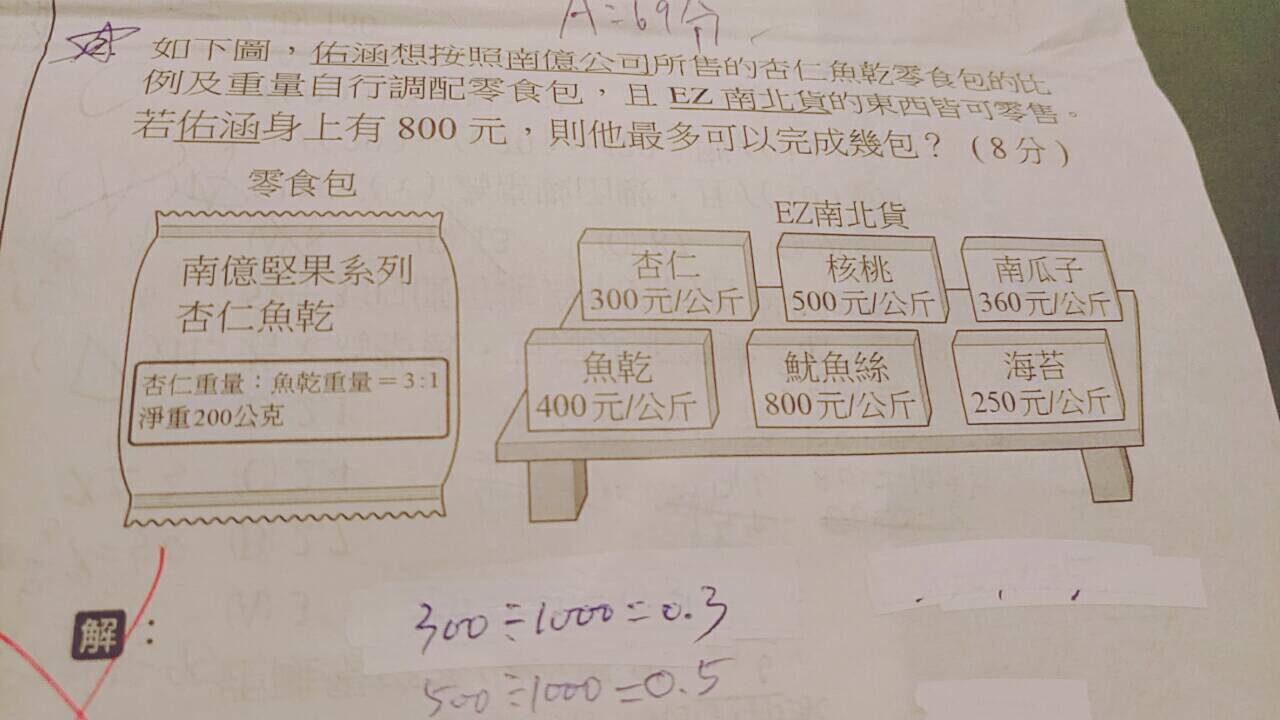 A=69分
2.
如下圖，佑涵想按照南億公司所售的杏仁魚乾零食包的比
例及重量自行調配零食包，且 EZ 南北貨的東西皆可零售。
若佑涵身上有 800 元，則他最多可以完成幾包？（8 分）
零食包
南億堅果系列
杏仁魚乾
杏仁重量：魚乾重量＝3:1
淨重200公克
EZ南北貨
杏仁
300元/公斤
核桃
500元/公斤
南瓜子
360元/公斤
魚乾
400元/公斤
魷魚絲
800元/公斤
海苔
250元/公斤
解：
300÷1000=0.3
500÷1000=0.5